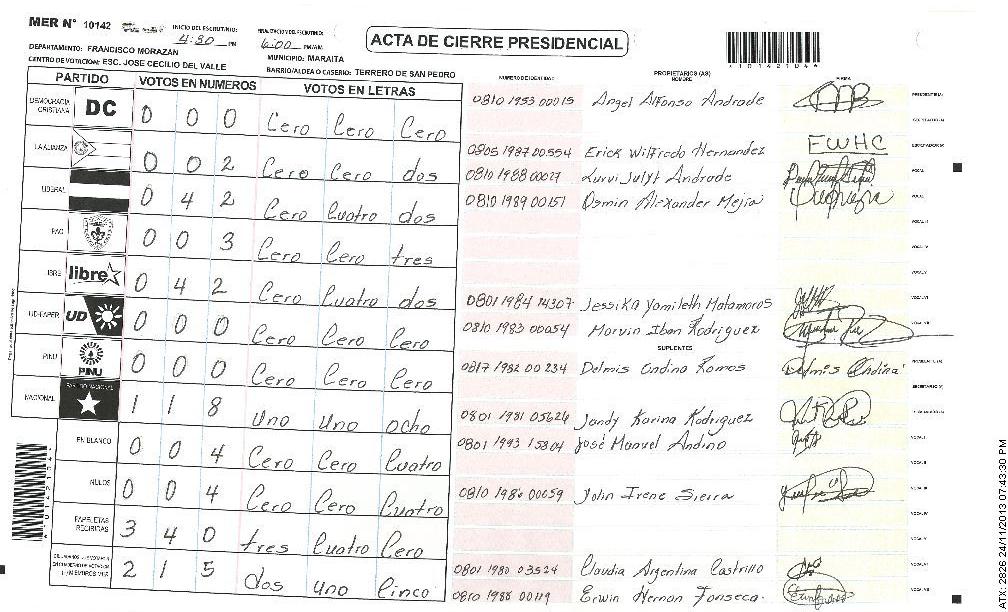 MER N° 10142
INICIO DEL ESCRUTINIO: 4:30 PM
FINALIZACION DEL ESCRUTINIO: 6:00 PM/AM
ACTA DE CIERRE PRESIDENCIAL
DEPARTAMENTO: FRANCISCO MORAZAN
MUNICIPIO: MARAITA
CENTRO DE VOTACION: ESC. JOSE CECILIO DEL VALLE
BARRIO/ALDEA O CASERIO: TERRERO DE SAN PEDRO
PARTIDO VOTOS EN NUMEROS VOTOS EN LETRAS
DEMOCRACIA CRISTIANA DC 0 0 0 Cero Cero Cero
LA ALIANZA 0 0 2 Cero Cero dos
LIBERAL 0 4 2 Cero Cuatro dos
PAC 0 0 3 Cero Cero tres
LIBRE libre 0 4 2 Cero Cuatro dos
UD-FAPER UD 0 0 0 Cero Cero Cero
PINU PINU 0 0 0 Cero Cero Cero
NACIONAL PARTIDO NACIONAL 1 1 8 uno uno ocho
EN BLANCO 0 0 4 Cero Cero Cuatro
NULOS 0 0 4 Cero Cero Cuatro
PAPELETAS RECIBIDAS 3 4 0 tres Cuatro Cero
2 1 5 dos uno Cinco
NUMERO DE IDENTIDAD PROPIETARIOS (AS) NOMBRE FIRMA
0810 1953 00015 Angel Alfonso Andrade
0805 1987 00554 Erick Wilfredo Hernandez FWHC
0810 1988 00027 Andrade
0810 1989 00151 Osmin Alexander Mejia
0801 1984 14307 Jessika Yamileth Matamoros
0810 1983 00054 Marvin Iban Rodriguez
SUPLENTES
0817 1982 00234 Delmis Ondina Ramos
0801 1981 05624 Jandy Karina Rodriguez
0801 1993 15804 José Manuel Andino
0810 1986 00059 Yolin Irene Sierra
0801 1980 03524 Claudia Argentina Castrillo
0810 1988 00119 Erwin Hernan Fonseca
*10142104*
24/11/2013 07:43:30 PM